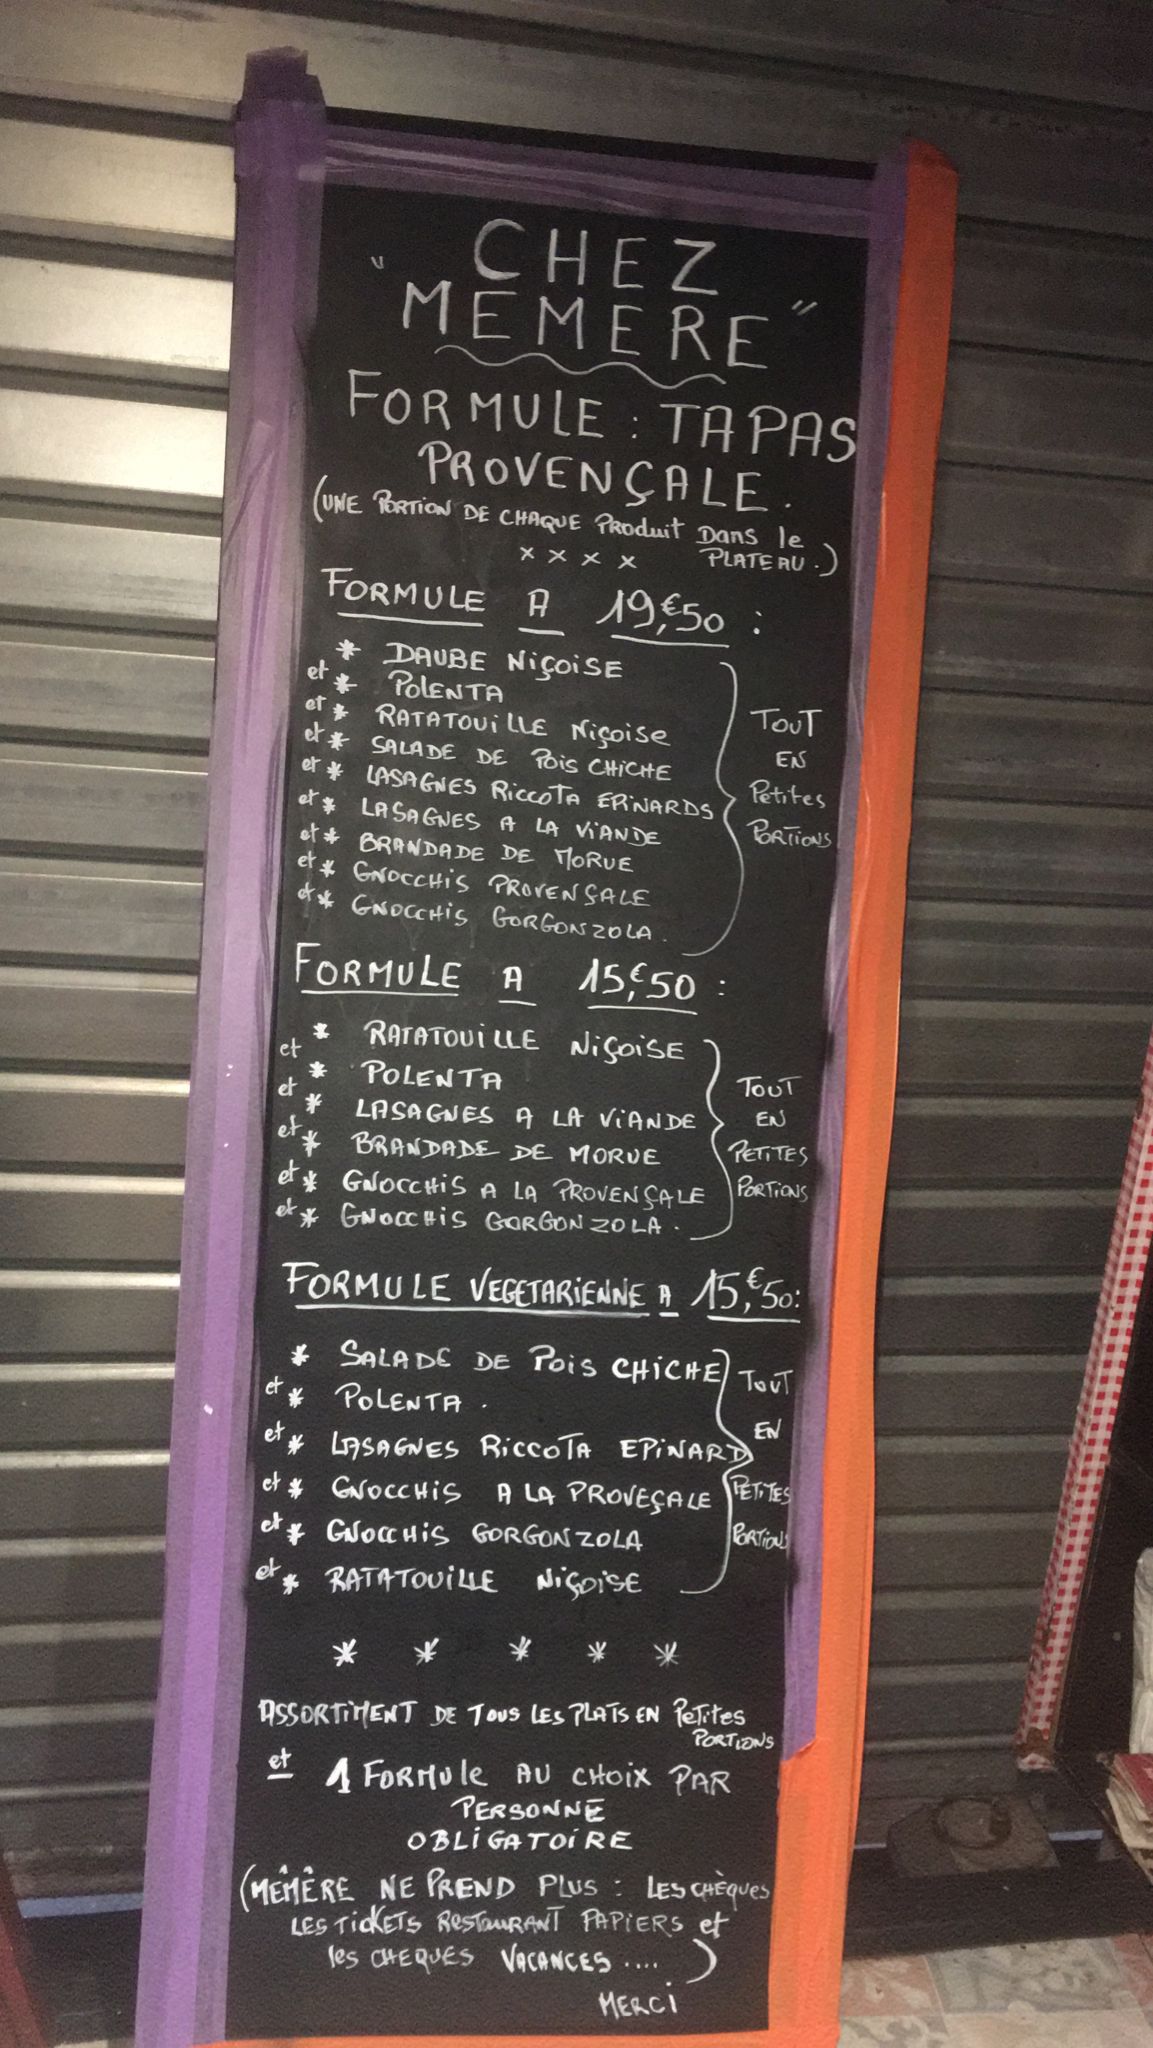 CHEZ
" MEMERE "
FORMULE : TAPAS
PROVENÇALE.
(UNE PORTION DE CHAQUE PRODUIT DANS le
PLATEAU.)
x x x x
FORMULE A 19,€50 :
* DAUBE NIÇOISE
et * POLENTA
et * RATATOUILLE NIÇOISE
et * SALADE DE POIS CHICHE
et * LASAGNES RICCOTA EPINARDS
et * LASAGNES A LA VIANDE
et * BRANDADE DE MORUE
et * GNOCCHIS PROVENÇALE
et * GNOCCHIS GORGONZOLA.
TOUT
EN
Petites
PORTIONS
FORMULE A 15,€50 :
* RATATOUILLE NIÇOISE
et * POLENTA
et * LASAGNES A LA VIANDE
et * BRANDADE DE MORUE
et * GNOCCHIS A LA PROVENÇALE
et * GNOCCHIS GORGONZOLA.
TOUT
EN
PETITES
PORTIONS
FORMULE VEGETARIENNE A 15,€50:
* SALADE DE POIS CHICHE
et * POLENTA.
et * LASAGNES RICCOTA EPINARD
et * GNOCCHIS A LA PROVEÇALE
et * GNOCCHIS GORGONZOLA
et * RATATOUILLE NIÇOISE
TOUT
EN
PETITES
PORTIONS
* * * * *
ASSORTIMENT DE TOUS LES PLATS EN Petites
PORTIONS
et 1 FORMULE AU CHOIX PAR
PERSONNE
OBLIGATOIRE
(MÊMÊRE NE PREND PLUS : LES CHÈQUES
LES TICKETS RESTAURANT PAPIERS et
les CHEQUES VACANCES ....)
MERCI